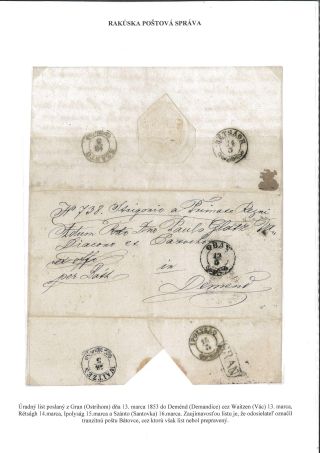 RAKÚSKA POŠTOVÁ SPRÁVA
SZÁNTÓ
RÉTSÁGH
14
3
No 738. Strigonio a Primate Regni
Adum Rndo Dno Paulo
Diacono et Parocho
ex offo
GRAN
13
3
per Báth
in
Deménd
WAITZEN
13
3
IPOLYSÁG
15
3
Úradný list poslaný z Gran (Ostrihom) dňa 13. marca 1853 do Deménd (Demandice) cez Waitzen (Vác) 13. marca,
Rétságh 14.marca, Ipolyság 15.marca a Szánto (Santovka) 16.marca. Zaujímavosťou listu je, že odosielateľ označil
tranzitnú poštu Bátovce, cez ktorú však list nebol prepravený.